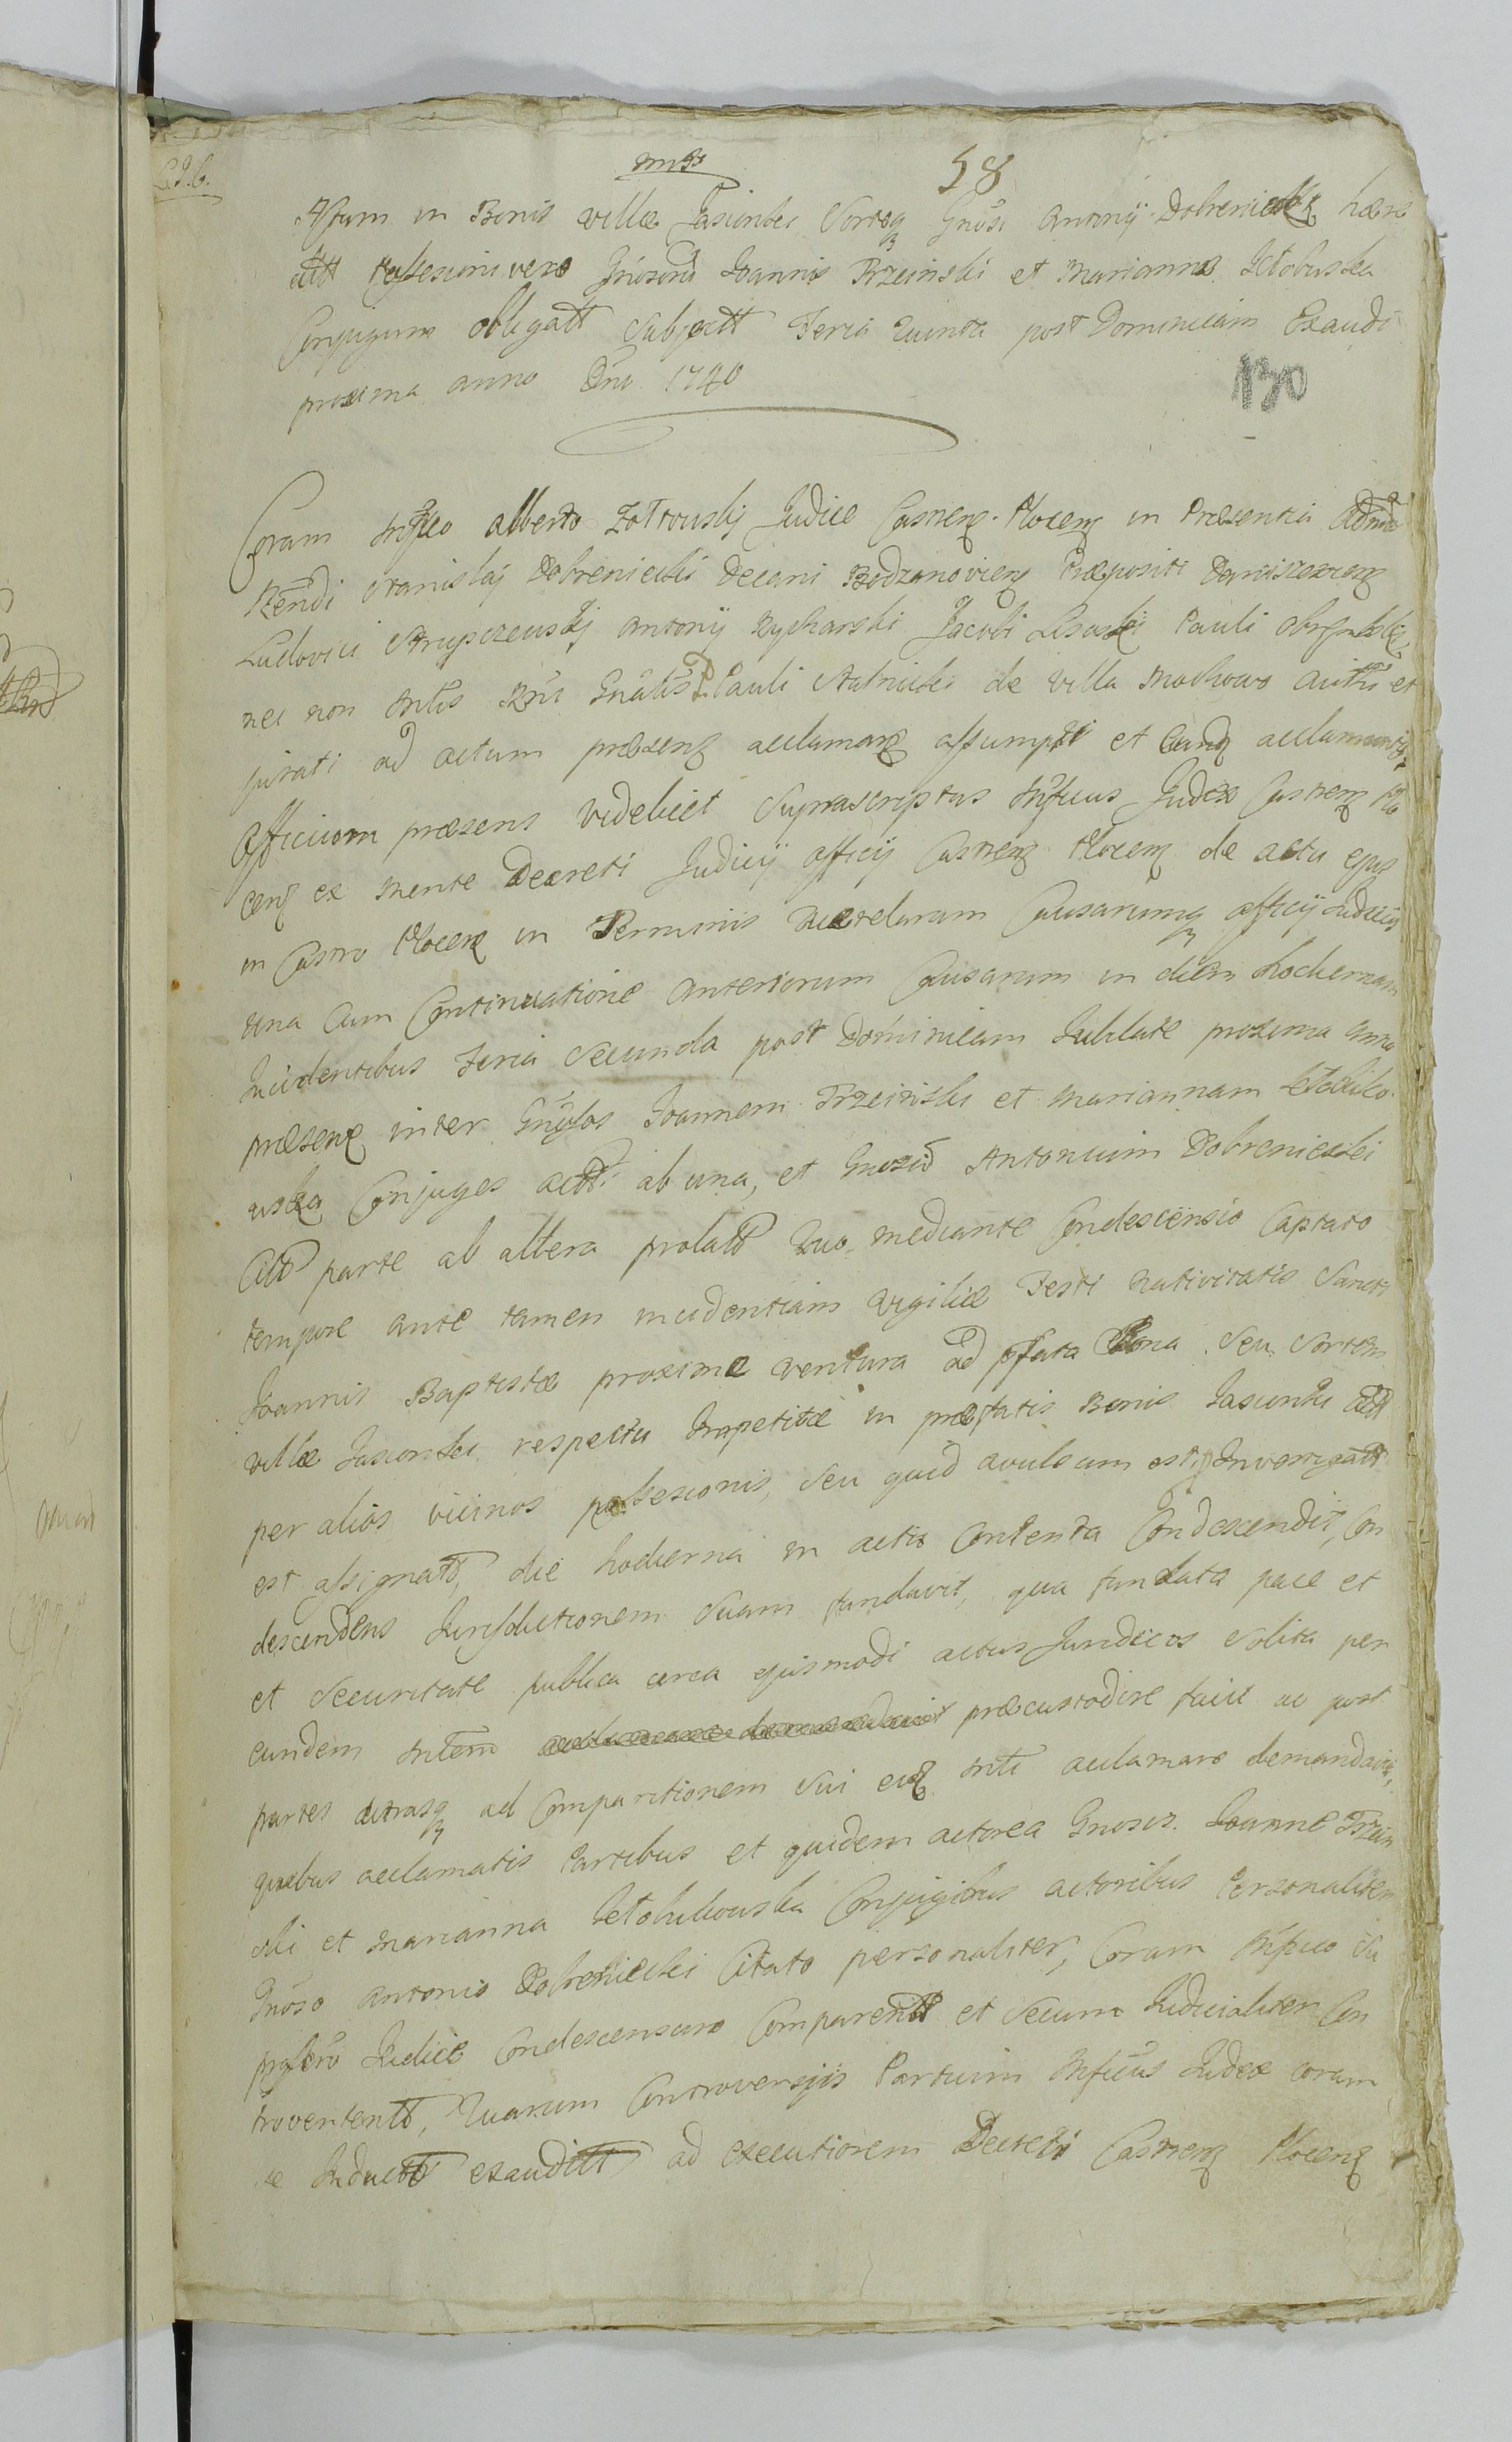 58
Actum in Bonis villæ Jasionki Sorteq Gnosi Antonij Dobrenicki hære
ditt possesioni vero Gnosorū Joannis Trzcinski et Marianna
Conjugum obligatt Subjectt Feria Quinta post Dominicam Exaudi
proxima anno Dni 1740
170
Coram Mgfico Alberto Judice Castren. Plocen in Præsentia Admdū
Rēndi Stanislaj Dobrenicki Decani Bodzanovien Præpositi
Ludovici Antonij Rycharski Jacobi Pauli
nec non Mtlis Rgni Gnalis P. Pauli de villa Mochowo authci et
jurati ad actum præsens acclamans assumpti et
Officium præsens videlicet Suprascriptus Mgficus Judex Castren Plo
cen ex mente Decreti Judicij officij Castren Plocen de actu ejus
in Castro Plocen in Terminis Querelarum Causarumq officij Judicij
una Cum Continuatione Anteriorum Causarum in diem hodiernam
Incidentibus Feria Secunda post Dominicam Jubilate proxima anno
præsens inter Gnosos Joannem Trzcinski et Mariannam
uska Conjuges actt. ab una, et Gnosū Antonium Dobrenicki
Citt parte ab altera prolatt Quo mediante Condescensio Captato
tempore ante tamen incidentiam Vigiliæ Festi Nativitatis Sancti
Joannis Baptistæ proxime ventura ad pfata Bona Seu Sortem
villæ Jasionki respectu Impetitæ in præfatis Bonis Jasionki
per alios vicinos possesionis, Seu quid avulsum est,
est assignatt, die hodierna in actis Contenta Condescendit, Con
descendens Jurisdictionem Suam fundavit, qua fundata pace et
et Securitate publica circa ejusmodi actus Juridicos Solita per
eundem Mtlem præcustodire facit ac post
partes utrasq ad Comparitionem Sui eid Mtli acclamare demandavit,
quibus acclamatis Partibus et quidem actorea Gnosis. Joanne Trzcin
ski et Marianna Conjugibus actoribus Personaliter
Gnoso Antonio Dobrenicki Citato personaliter, Coram Mgfico Su
Judice Condescensuro Comparentt et Secum Judicialiter Con
trovertentt, Quarum Controversijs Partium Mgficus Judex coram
se Inductt exauditt ad executionem Decreti Castren Plocen